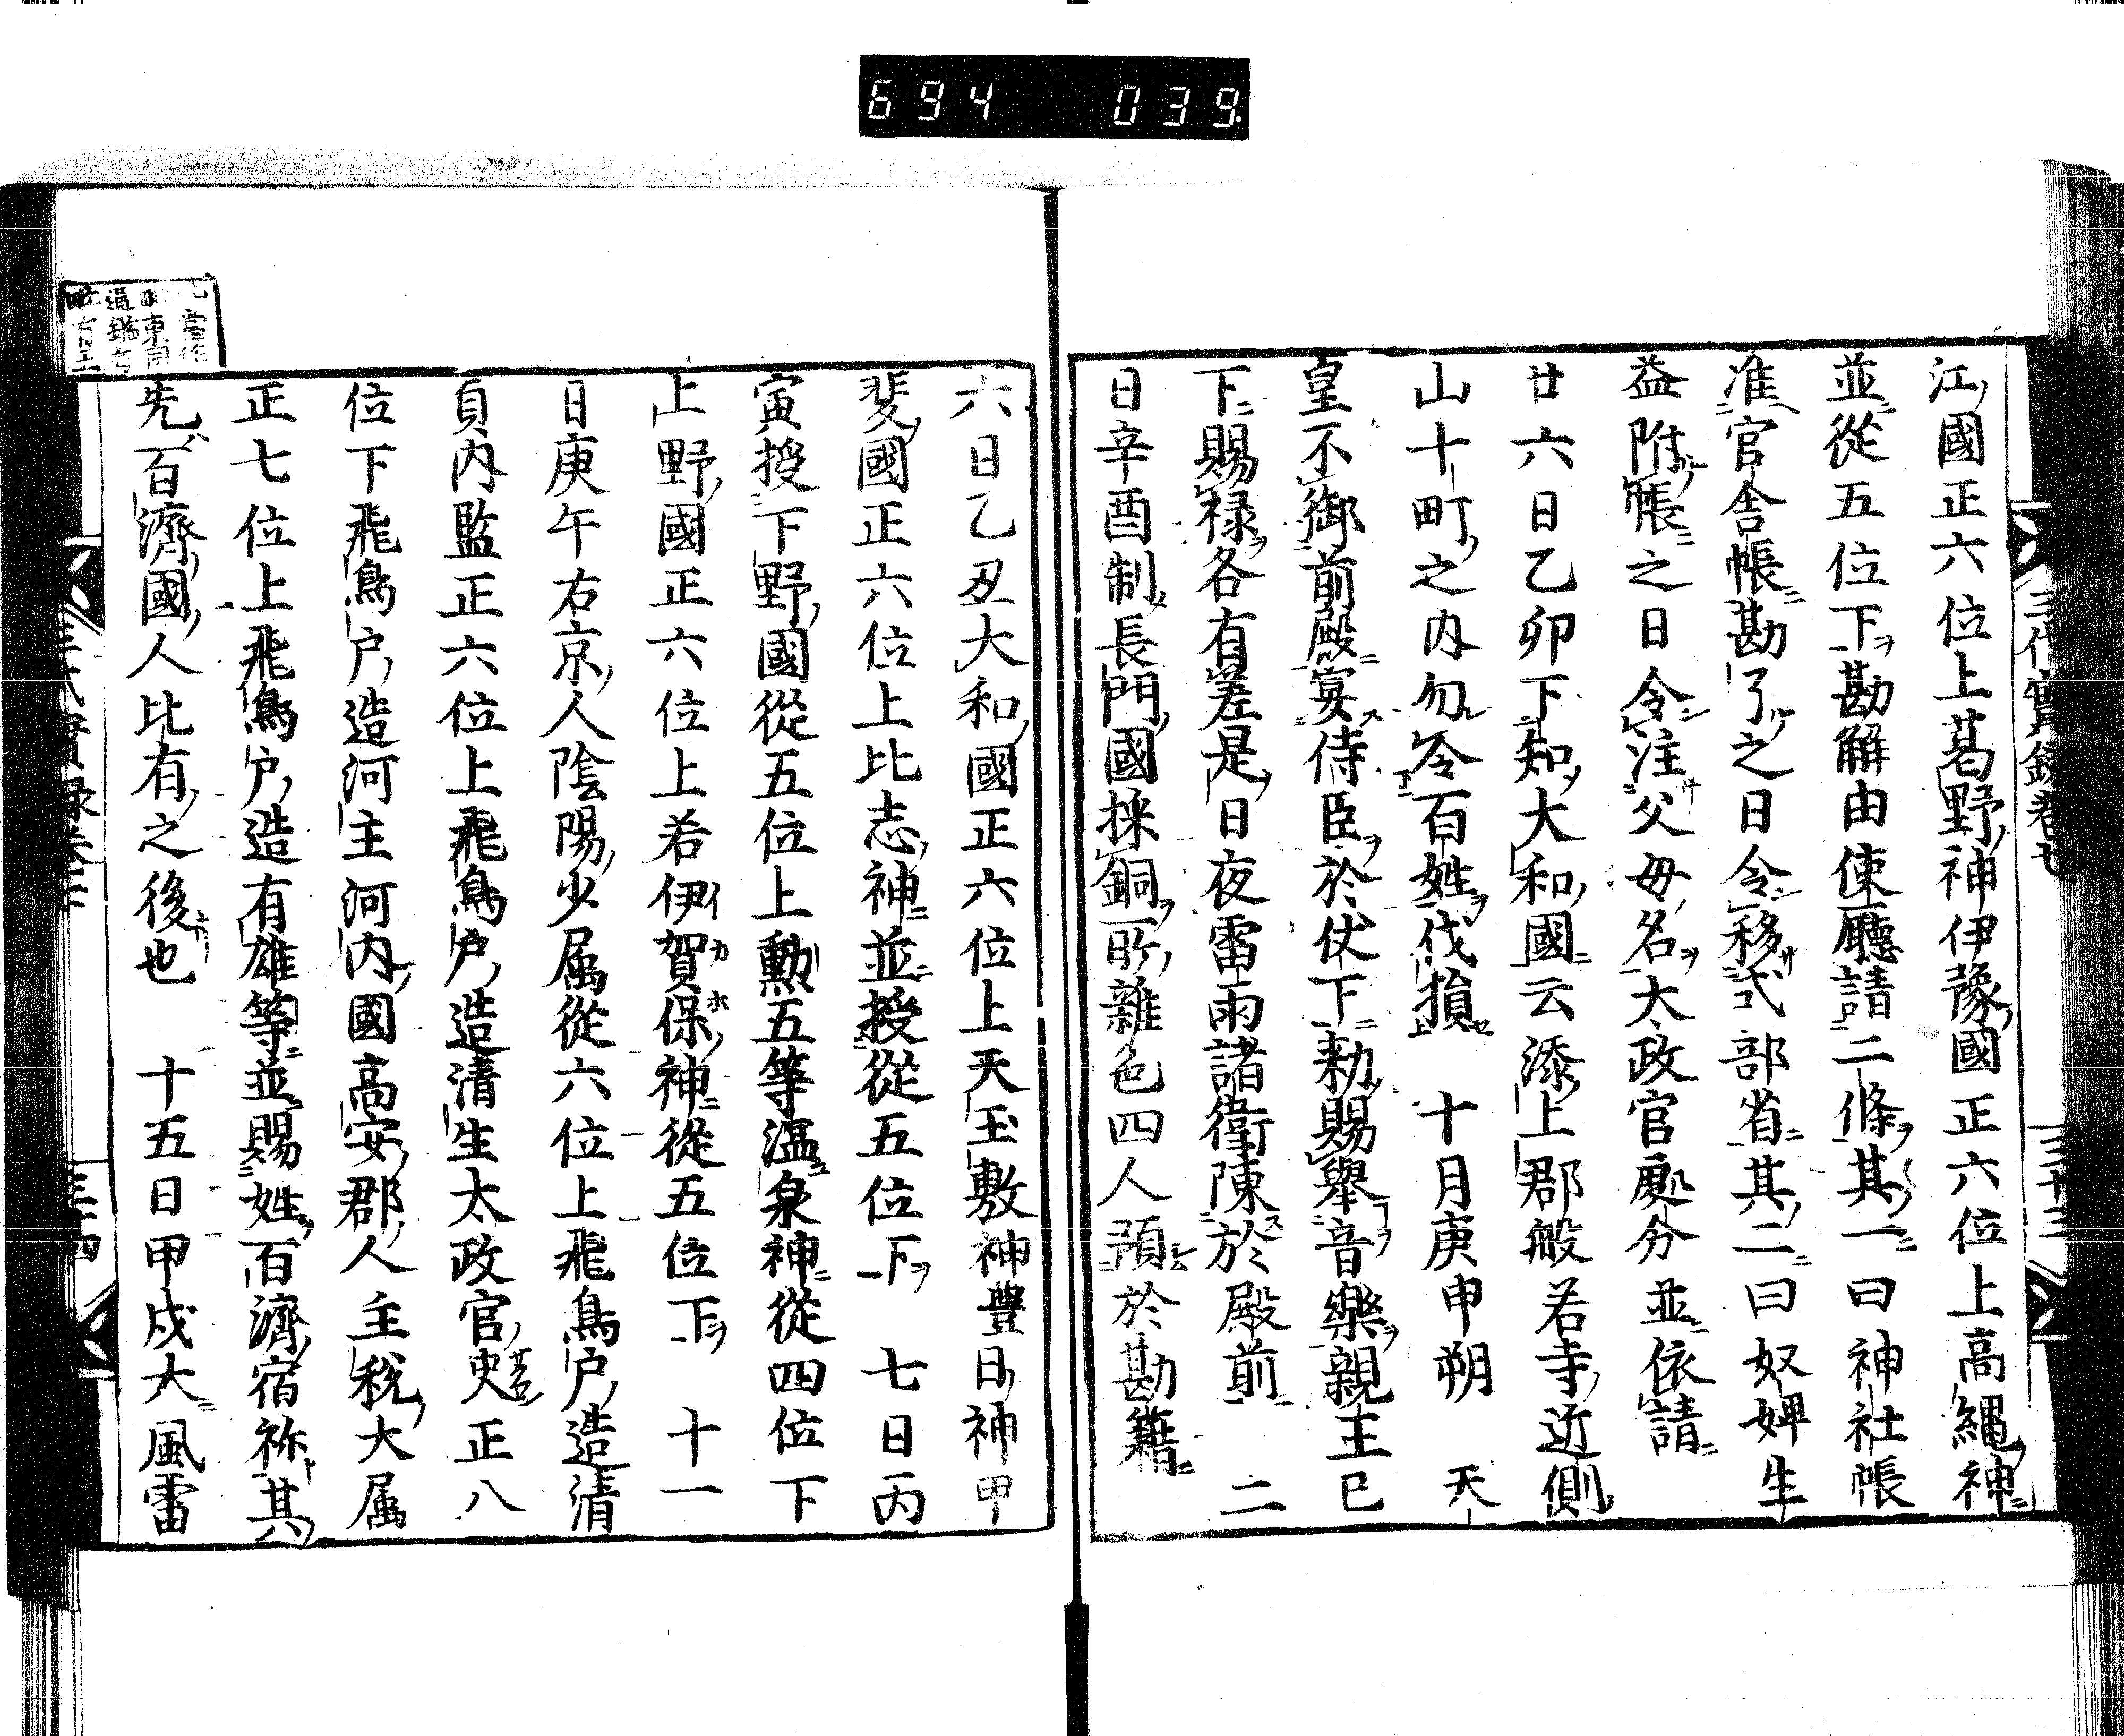 694 039
江國正六位上葛野神伊豫國正六位上高繩神
並從五位下勘解由使廳請二條其一曰神社帳
准官舍帳勘了之日令移式部省其二曰奴婢生
益附帳之日令注父母名太政官處分並依請
廿六日乙卯下知大和國云添上郡般若寺近側
山十町之内勿令百姓伐損 十月庚申朔 天
皇不御前殿宴侍臣於仗下勅賜擧音樂親王已
下賜禄各有差是日夜雷雨諸衛陳於殿前 二
日辛酉制長門國採銅所雜色四人預於勘籍
六日乙丑大和國正六位上天玉敷神豊日神甲
斐國正六位上比志神並授從五位下 七日丙
寅授下野國從五位上勲五等温泉神從四位下
上野國正六位上若伊賀保神從五位下 十一
日庚午右京人陰陽少属從六位上飛鳥戸造清
貞内監正六位上飛鳥戸造清生太政官史生正八
位下飛鳥戸造河主河内國高安郡人主税大属
正七位上飛鳥戸造有雄等並賜姓百濟宿祢其
先百濟國人比有之後也 十五日甲戌大風雷